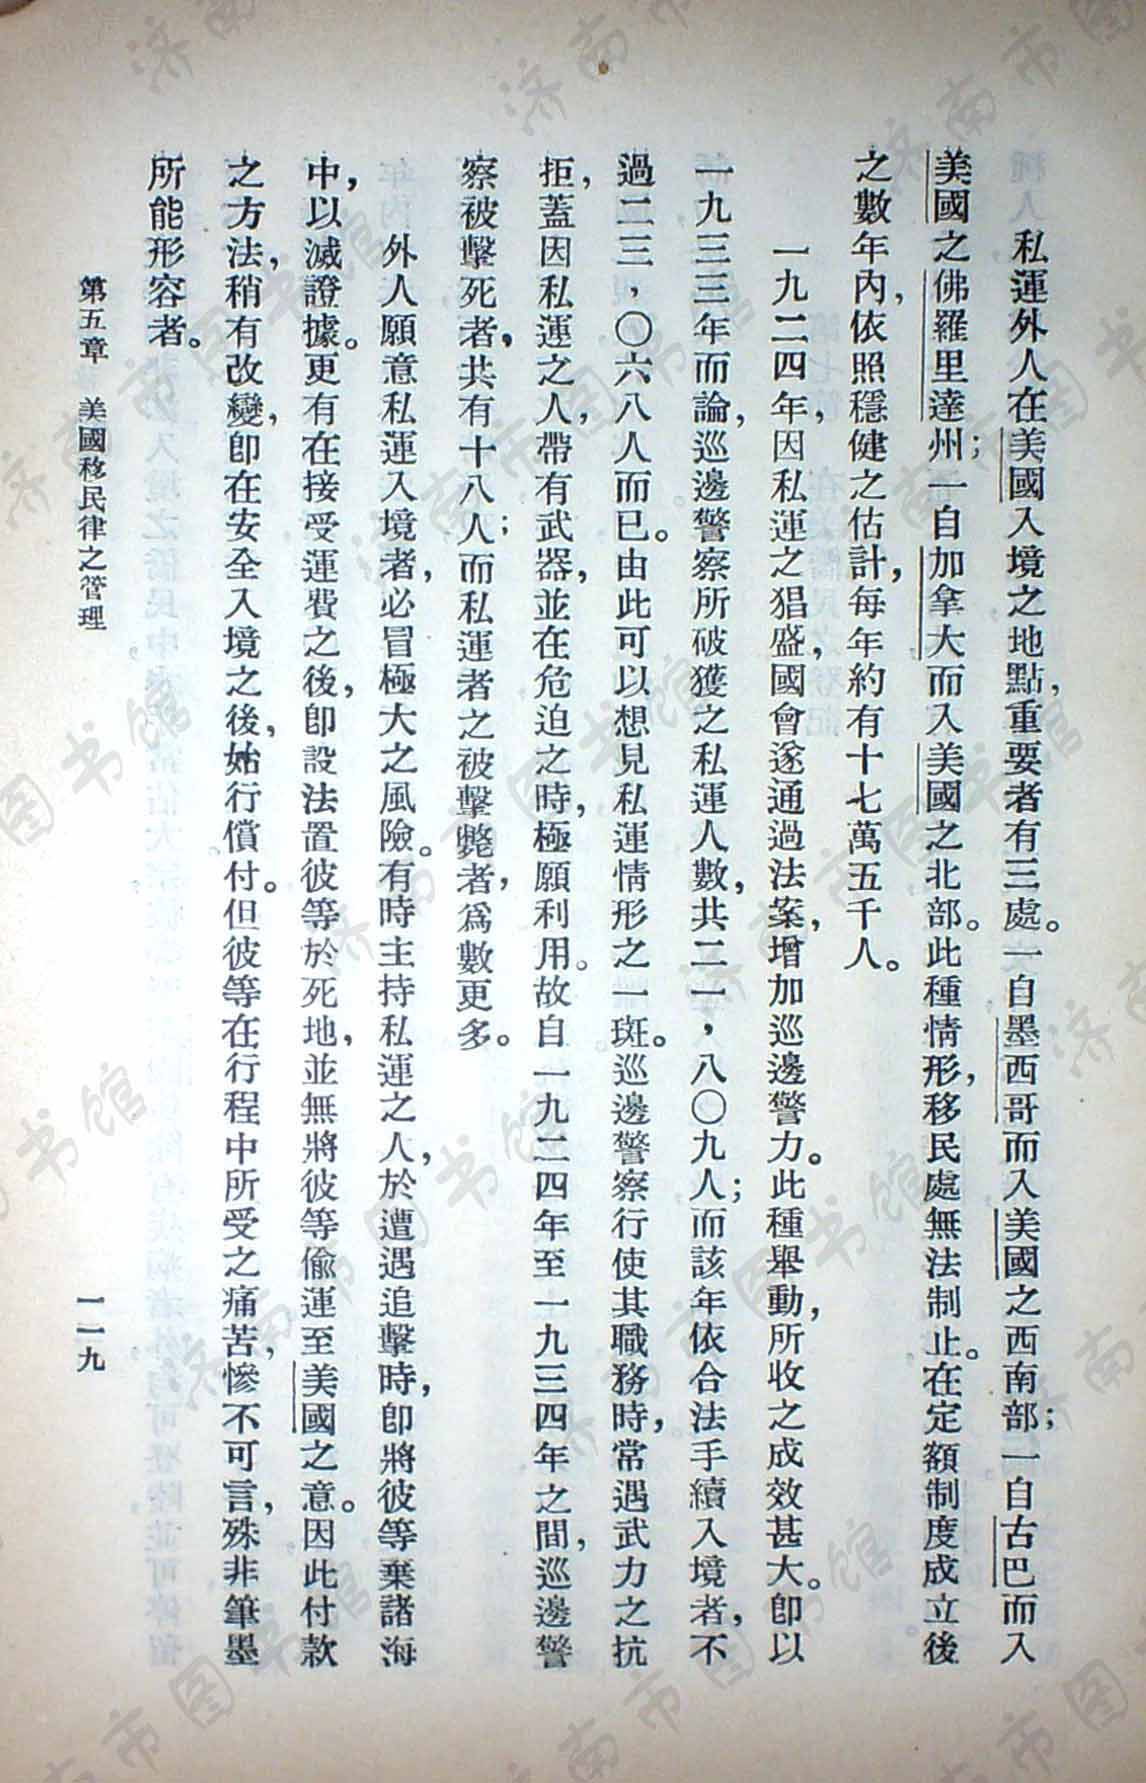 私運外人在美國入境之地點，重要者有三處。一自墨西哥而入美國之西南部；一自古巴而入
美國之佛羅里達州；一自加拿大而入美國之北部。此種情形，移民處無法制止。在定額制度成立後
之數年內，依照穩健之估計，每年約有十七萬五千人。
一九二四年，因私運之猖盛，國會遂通過法案，增加巡邊警力。此種舉動，所收之成效甚大。卽以
一九三三年而論，巡邊警察所破獲之私運人數，共二一，八〇九人；而該年依合法手續入境者，不
過二三，〇六八人而已。由此可以想見私運情形之一斑。巡邊警察行使其職務時，常遇武力之抗
拒，蓋因私運之人，帶有武器，並在危迫之時，極願利用。故自一九二四年至一九三四年之間，巡邊警
察被擊死者，共有十八人；而私運者之被擊斃者，爲數更多。
外人願意私運入境者，必冒極大之風險。有時主持私運之人，於遭遇追擊時，卽將彼等棄諸海
中，以滅證據。更有在接受運費之後，卽設法置彼等於死地，並無將彼等偷運至美國之意。因此付款
之方法，稍有改變，卽在安全入境之後，始行償付。但彼等在行程中所受之痛苦，慘不可言，殊非筆墨
所能形容者。
第五章　美國移民律之管理
一一九
济南市图书馆